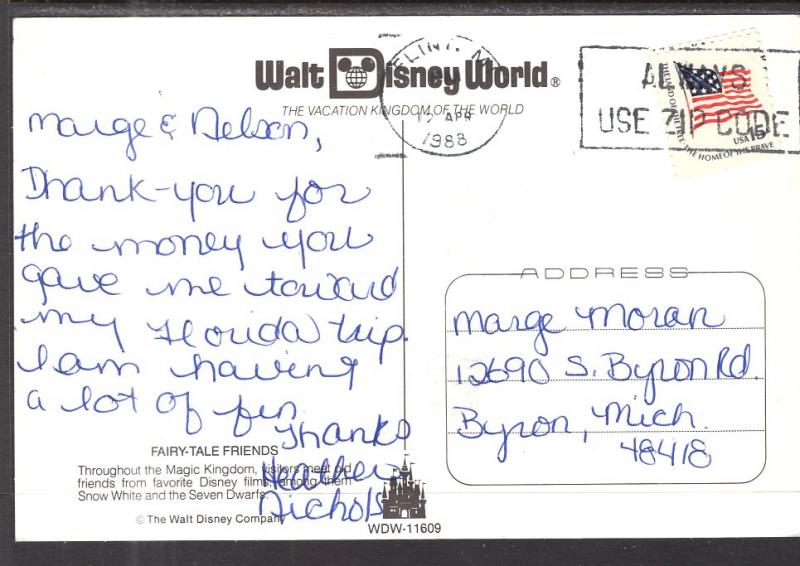 Walt Disney World®
THE VACATION KINGDOM OF THE WORLD
FLINT, M
12 APR
1988
ALWAYS
USE ZIP CODE
THE LAND OF THE FREE, THE HOME OF THE BRAVE
USA 15c
Marge & Nelson,
Thank-you for
the money you
gave me toward
my Florida trip.
I am having
a lot of fun
Thanks
Heather
Nichols
ADDRESS
Marge Moran
12690 S. Byron Rd.
Byron, Mich.
48418
FAIRY-TALE FRIENDS
Throughout the Magic Kingdom, visitors meet old
friends from favorite Disney films, among them
Snow White and the Seven Dwarfs.
© The Walt Disney Company
WDW-11609